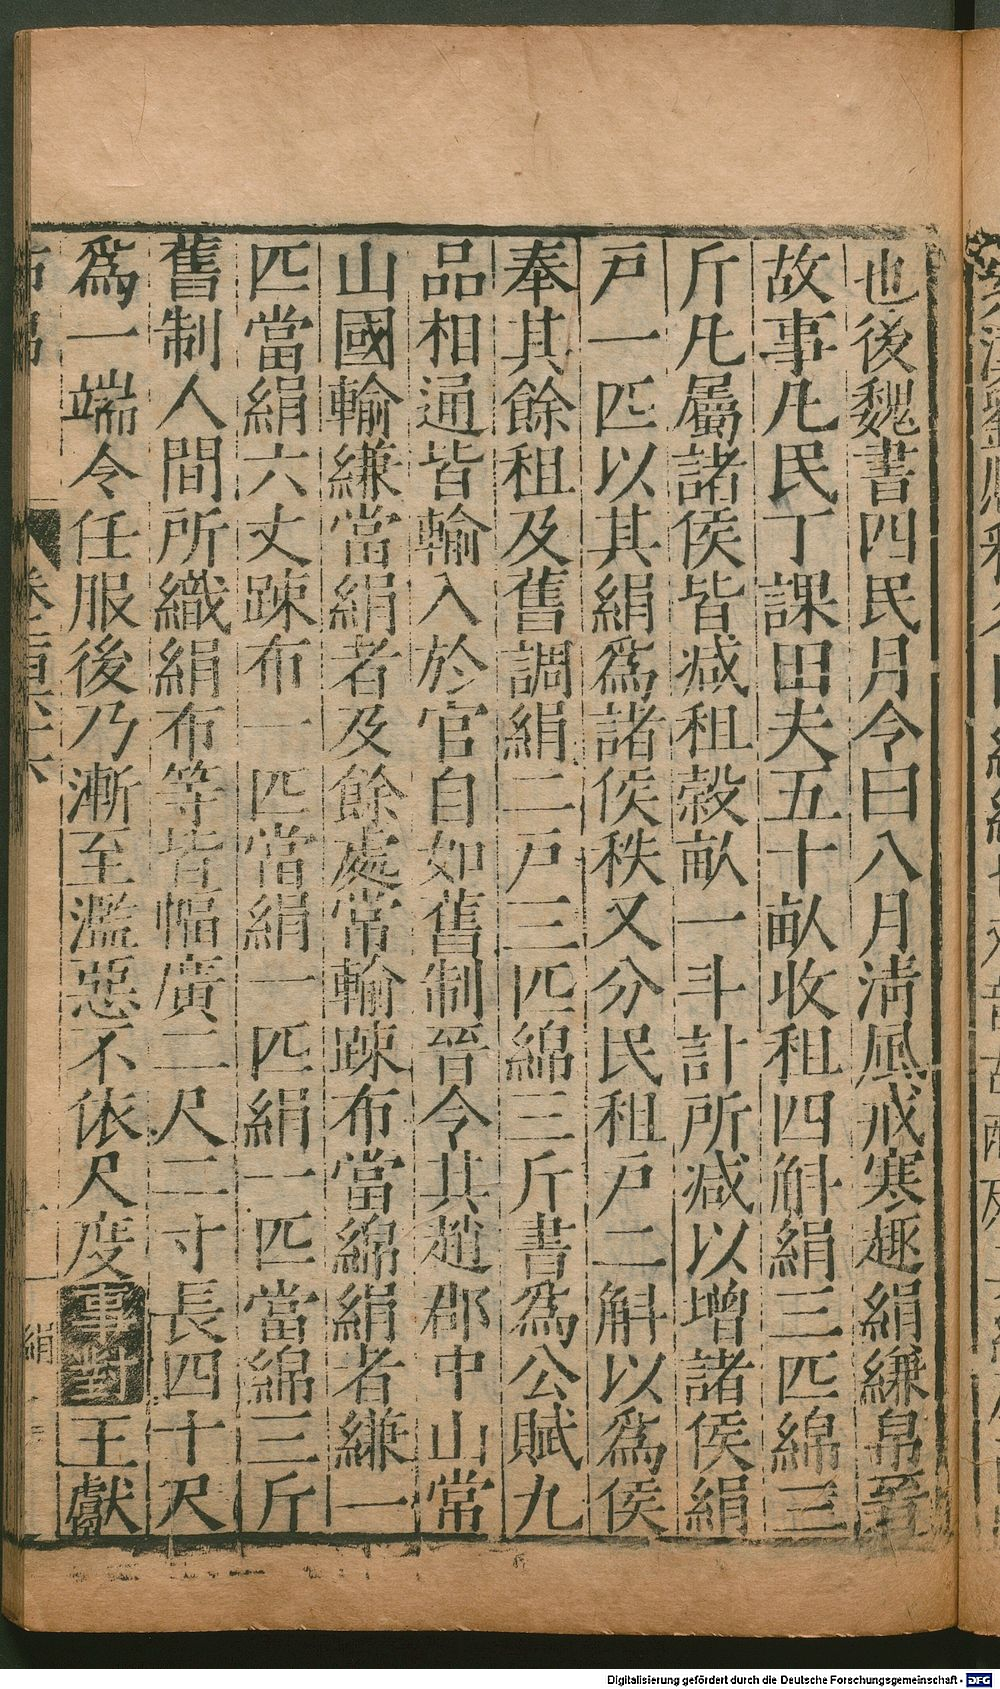 也後魏書四民月令曰八月淸風戒寒趣絹縑帛晉
故事凡民丁課田夫五十畝收租四斛絹三匹綿三
斤凡屬諸侯皆減租穀畝一斗計所減以增諸侯絹
戸一匹以其絹爲諸侯秩又分民租戸二斛以爲侯
奉其餘租及舊調絹二戸三匹綿三斤書爲公賦九
品相通皆輸入於官自如舊制晉令其趙郡中山常
山國輸縑當絹者及餘處常輸疎布當綿絹者縑一
匹當絹六丈疎布一匹當絹一匹絹一匹當綿三斤
舊制人間所織絹布等皆幅廣二尺二寸長四十尺
爲一端令任服後乃漸至濫惡不依尺度事對王獻
絹
Digitalisierung gefördert durch die Deutsche Forschungsgemeinschaft - DFG